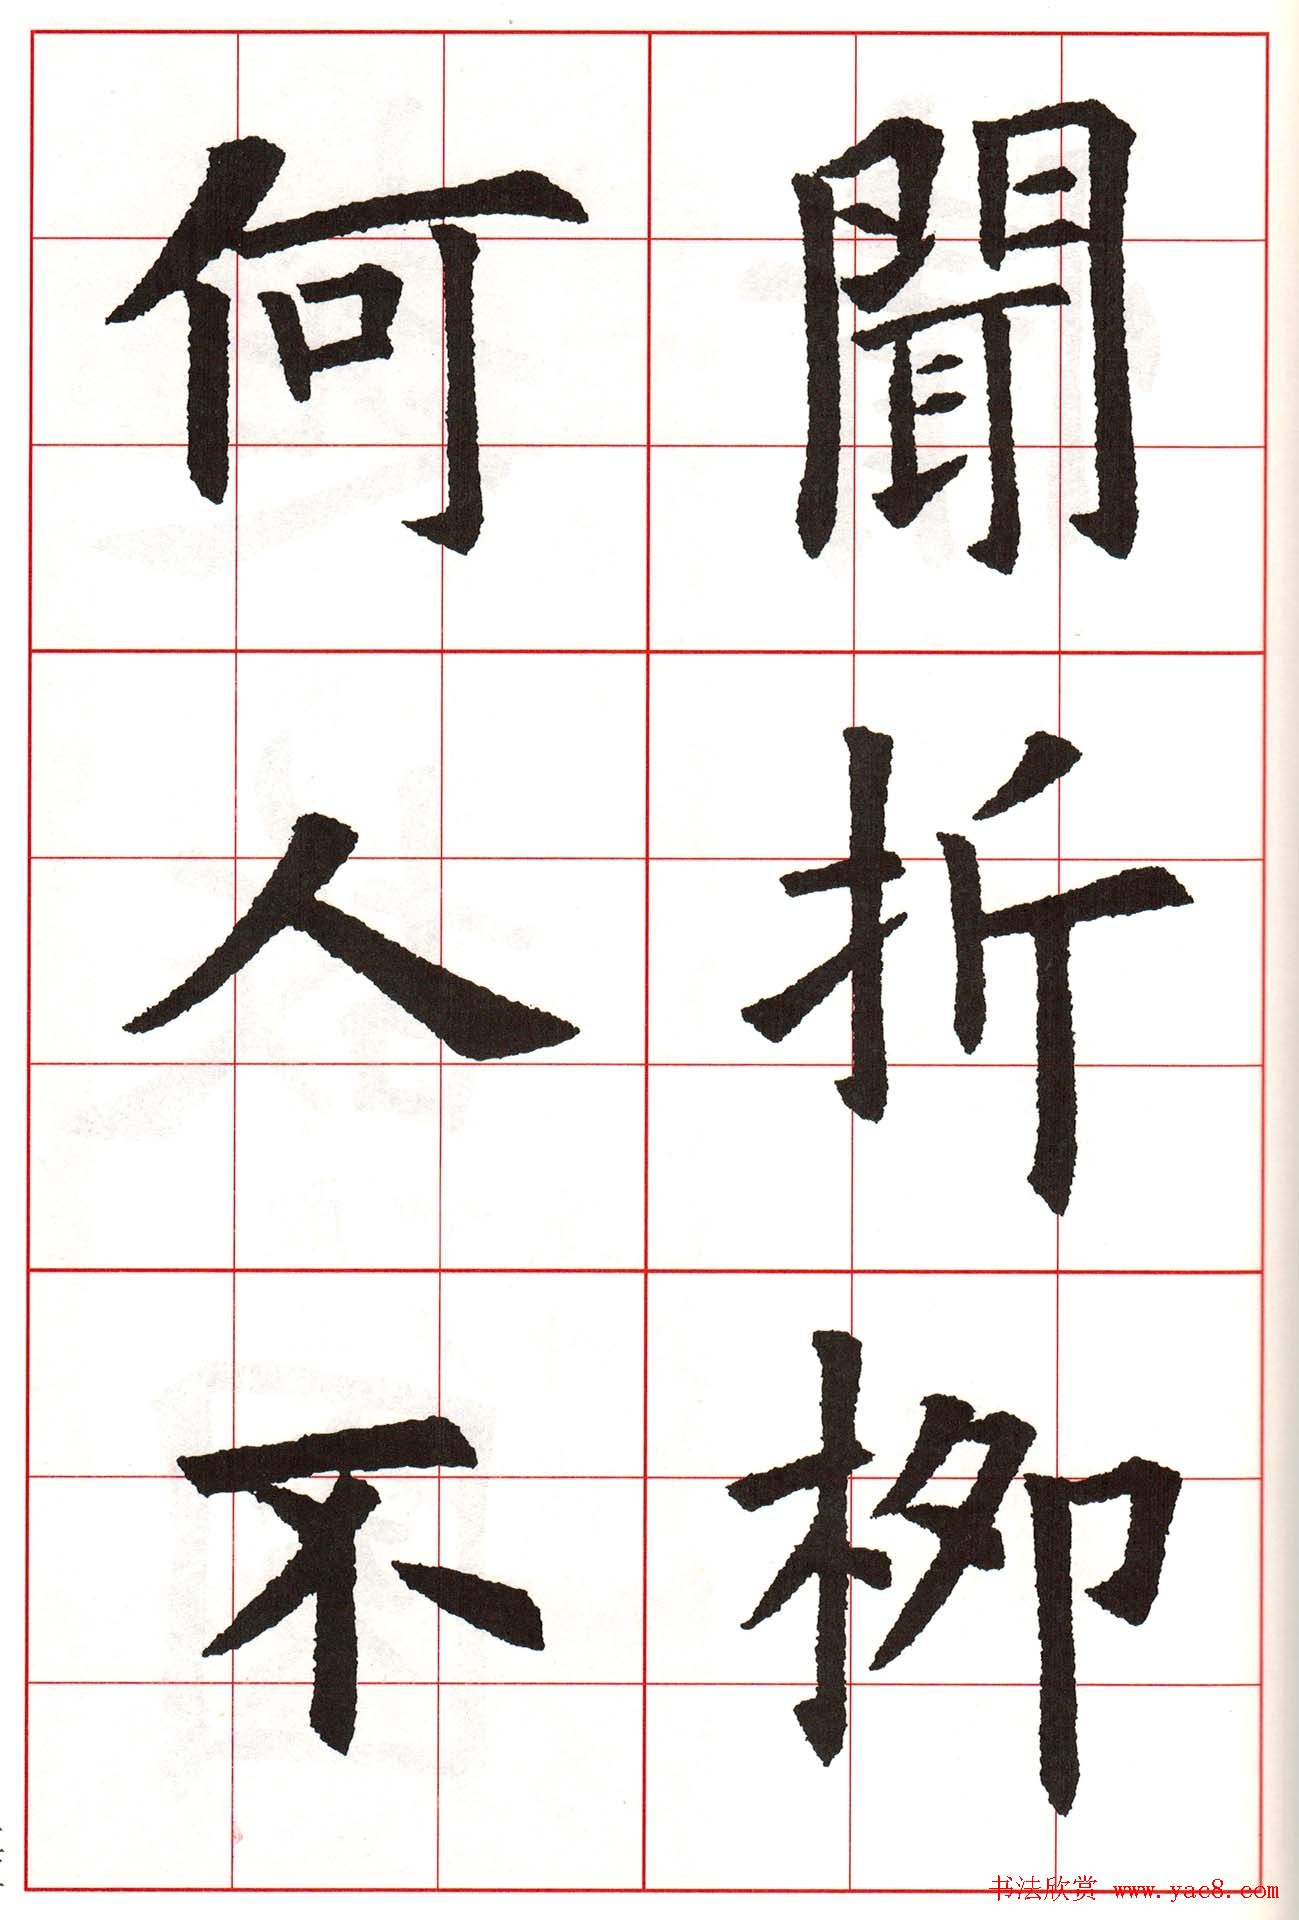 聞折柳
何人不
书法欣赏 www.yac8.com